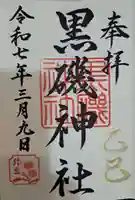 奉拝
乙巳
黒磯神社
令和七年三月九日